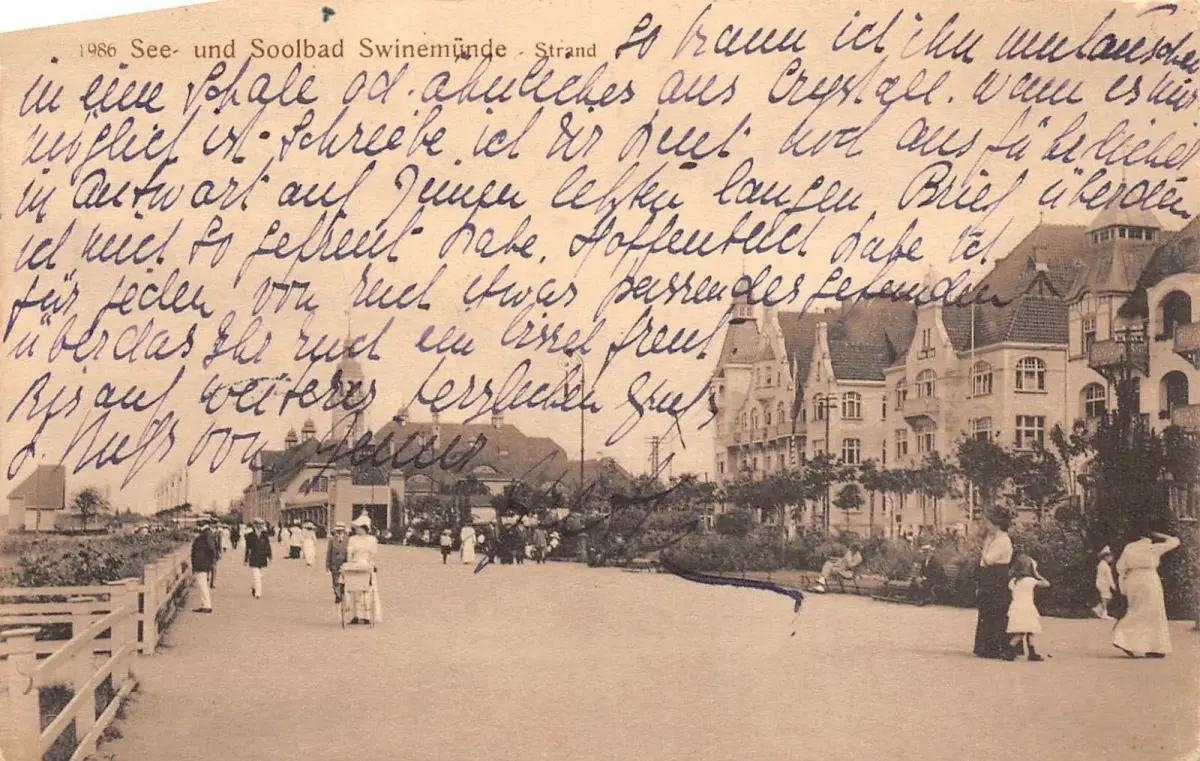 1986 See- und Soolbad Swinemünde - Strand
So kann ich ihn umtauschen
in eine Schale od. ähnliches aus Crystall. wann es mir
möglich ist schreibe ich dir heut noch ausführlicher
in Antwort auf letzten langen Brief über den
ich mich so gefreut habe. Hoffentlich habe ich
für jeden von Euch etwas passendes gefunden
über das Ihr Euch ein bissel freut
Bis auf weiteres herzlichen Gruß
u. Kuß von